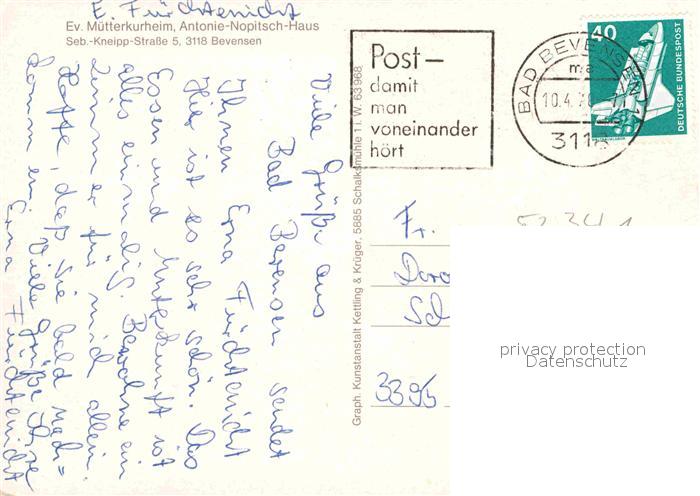 E. Fürchtenicht
Ev. Mütterkurheim, Antonie-Nopitsch-Haus
Seb.-Kneipp-Straße 5, 3118 Bevensen
Viele Grüße aus
Bad Bevensen sendet
Ihnen Erna Fürchtenicht
Hier ist es sehr schön. Das
Essen und Unterkunft ist
alles einmalig. Bewohne ein
Zimmer für mich allein.
Hoffe, daß Sie bald nach=
kommen. Viele Grüße Ihre
Erna Fürchtenicht
Graph. Kunstanstalt Kettling & Krüger, 5885 Schalksmühle 1 I. W. 63968
Post –
damit
man
voneinander
hört
BAD BEVENSEN 1
ma
10.4.
3118
40
DEUTSCHE BUNDESPOST
Fr.
3395
privacy protection
Datenschutz